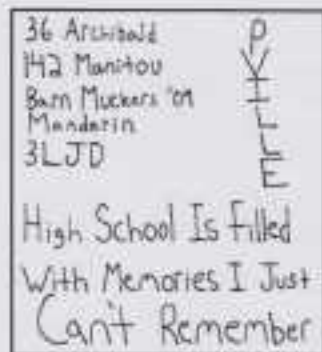 36 Archibald
142 Manitou
Barn Muckers '09
Mandarin
3LJD
PVILLE
High School Is Filled
With Memories I Just
Can't Remember